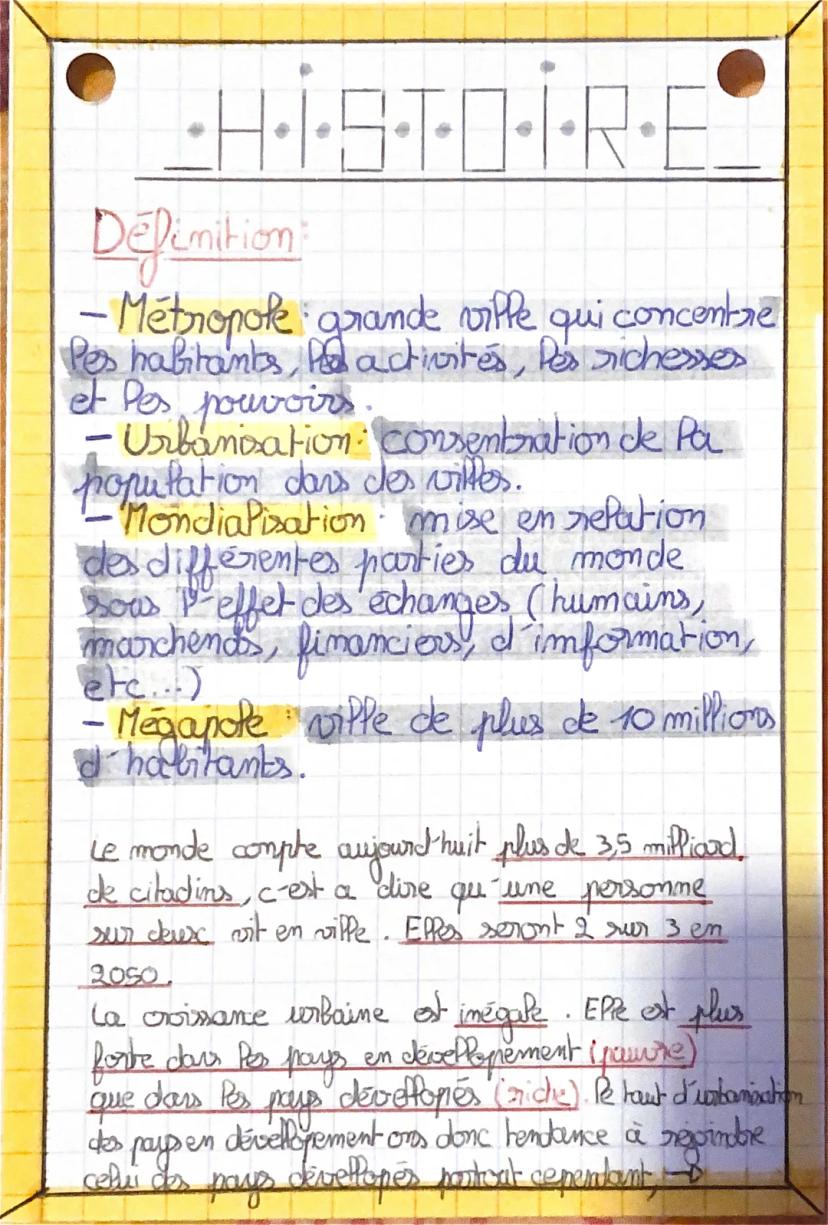 HiSTOiRE
Définition:
- Métropole : grande ville qui concentre
les habitants, les activités, les richesses
et les pouvoirs.
- Urbanisation : consentration de la
population dans des villes.
- Mondialisation : mise en relation
des différentes parties du monde
sous l'effet des échanges (humains,
marchends, financiers, d'information,
etc...)
- Mégapole : ville de plus de 10 millions
d'habitants.
Le monde compte aujourd'huit plus de 3,5 milliard
de citadins, c-est a dire qu'une personne
sur deux vit en ville. Elles seront 2 sur 3 en
2050.
La croissance urbaine est inégale. Elle est plus
forte dans les pays en dévellopement (pauvre)
que dans les pays dévellopés (riche). le taut d'urbanisation
des pays en dévellopement ons donc tendance à rejoindre
celui des pays dévellopés partout cependant, →